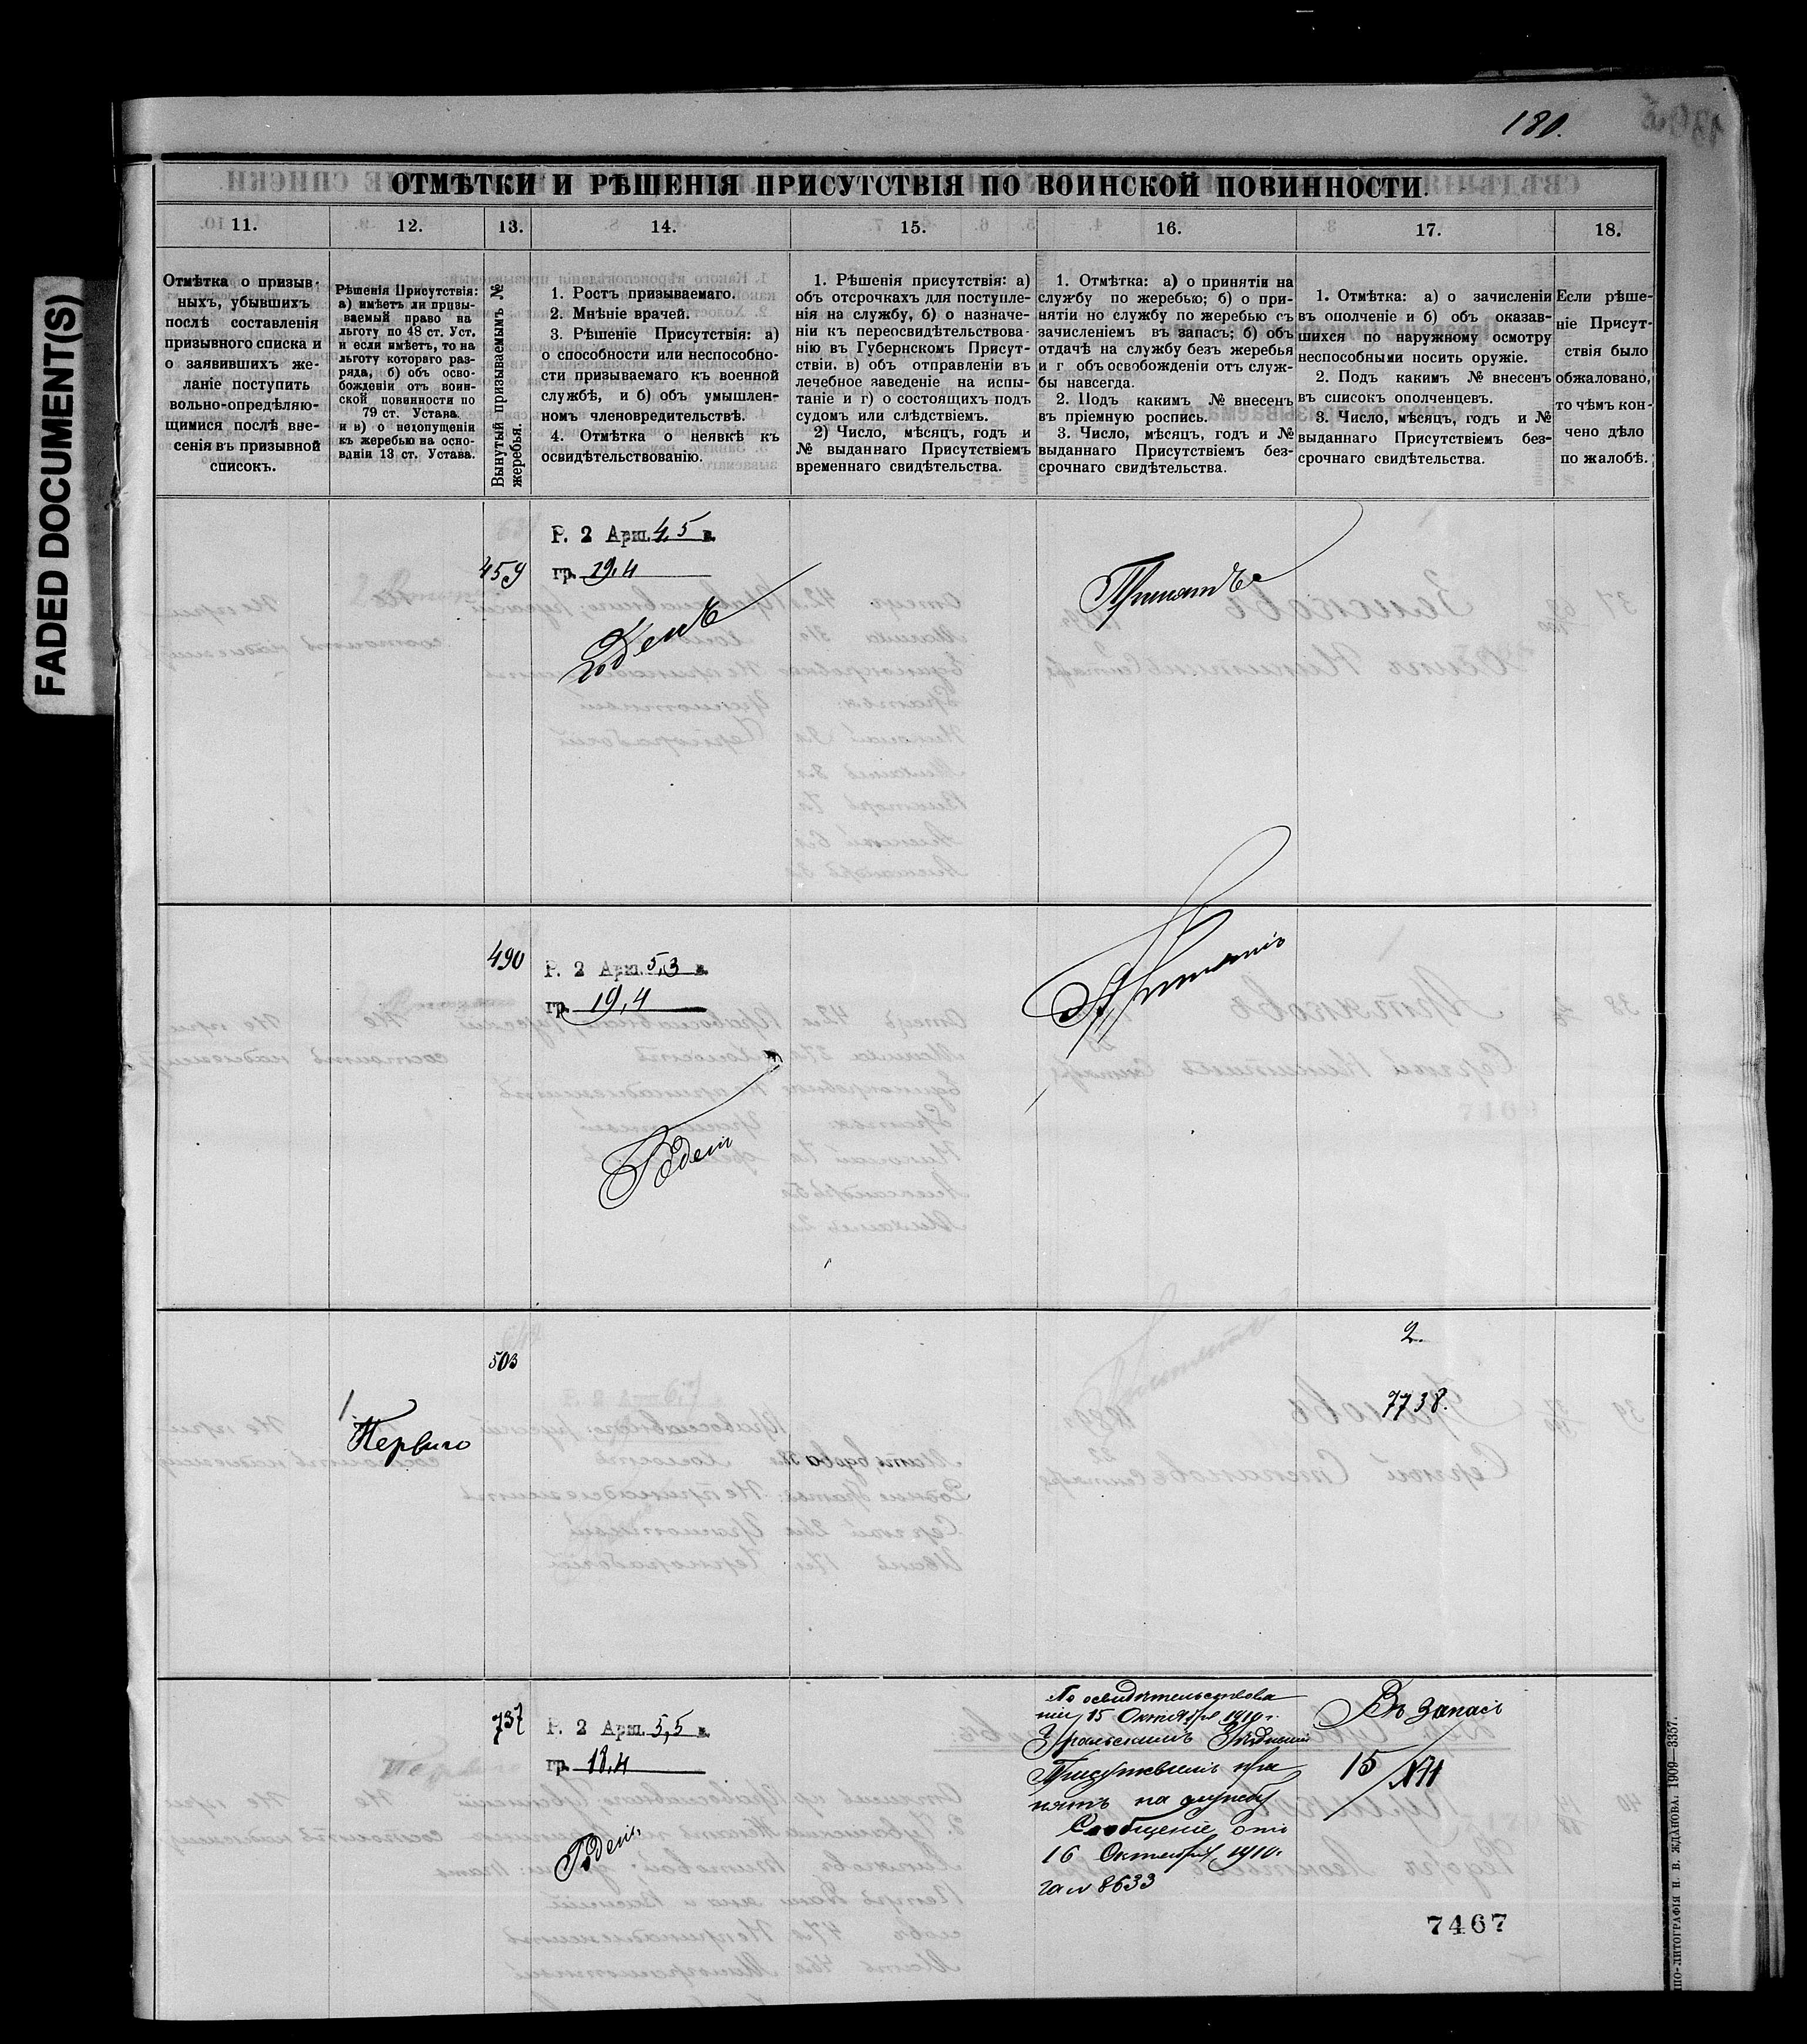 180.
FADED DOCUMENT(S)
ОТМѢТКИ И РѢШЕНІЯ ПРИСУТСТВІЯ ПО ВОИНСКОЙ ПОВИННОСТИ.
11.
12.
13.
14.
15.
16.
17.
18.
Отмѣтка о призыв-
ныхъ, убывшихъ
послѣ составленія
призывного списка и
о заявившихъ же-
ланіе поступить
вольно-опредѣляю-
щимися послѣ вне-
сенія въ призывной
списокъ.
Рѣшенія Присутствія:
а) имѣетъ ли призы-
ваемый право на
льготу по 48 ст. Уст.
и если имѣетъ, то на
льготу котораго раз-
ряда, б) объ осво-
божденіи отъ воин-
ской повинности по
79 ст. Устава.
и в) о недопущеніи
къ жеребью на осно-
ваніи 13 ст. Устава.
Вынутый призываемымъ №
жеребья.
1. Ростъ призываемаго.
2. Мнѣніе врачей.
3. Рѣшеніе Присутствія: а)
о способности или неспособно-
сти призываемаго къ военной
службѣ, и б) объ умышлен-
номъ членовредительствѣ.
4. Отмѣтка о неявкѣ къ
освидѣтельствованію.
1. Рѣшенія присутствія: а)
объ отсрочкахъ для поступле-
нія на службу, б) о назначе-
ніи къ переосвидѣтельствова-
нію въ Губернскомъ Присут-
ствіи. в) объ отправленіи въ
лечебное заведеніе на испы-
таніе и г) о состоящихъ подъ
судомъ или слѣдствіемъ.
2) Число, мѣсяцъ, годъ и
№ выданнаго Присутствіемъ
временнаго свидѣтельства.
1. Отмѣтка: а) о принятіи на
службу по жеребью; б) о при-
нятіи но службу по жеребью съ
зачисленіемъ въ запасъ; б) объ
отдачѣ на службу безъ жеребья
и г объ освобожденіи отъ служ-
бы навсегда.
2. Подъ какимъ № внесенъ
въ пріемную роспись.
3. Число, мѣсяцъ, годъ и №
выданнаго Присутствіемъ без-
срочнаго свидѣтельства.
1. Отмѣтка: а) о зачисленіи
въ ополченіе и б) объ оказав-
шихся по наружному осмотру
неспособными носить оружіе.
2. Подъ какимъ № внесенъ
въ списокъ ополченцевъ.
3. Число, мѣсяцъ, годъ и №
выданнаго Присутствіемъ без-
срочнаго свидѣтельства.
Если рѣше-
ніе Присут-
ствія было
обжаловано,
то чѣмъ кон-
чено дѣло
по жалобѣ.
459
Р. 2 Арш. 4,5 в.
гр. 19,4
Годенъ
Принятъ
490
Р. 2 Арш. 5,3 в.
гр. 19,4
Годенъ
Принятъ
503
1
Перваго
2.
7738.
737
Р. 2 Арш. 5,5 в.
гр. 18,4
Годенъ
По освидѣтельствова
ніи 15 Октября 1910 г.
Уральскимъ Уѣзднымъ
Присутствіемъ при
нятъ на службу
Сообщеніе отъ
16 Октября 1910 г.
за № 8633
Въ запасъ
15/XII
7467
ПО-ЛИТОГРАФІЯ Н. В. ЖДАНОВА. 1909—3357.